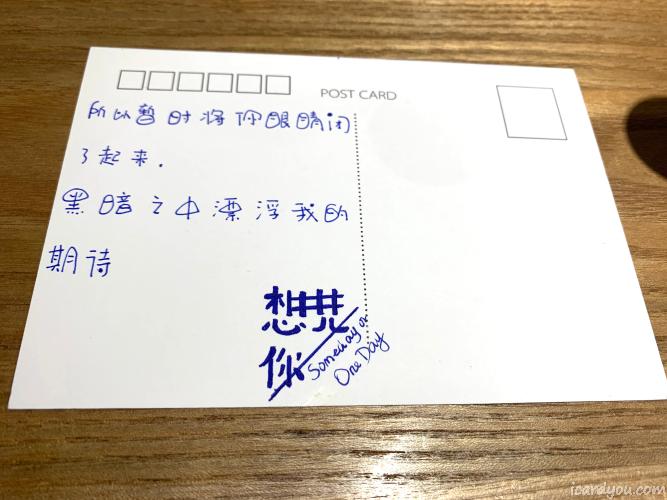 POST CARD
所以暂时将你眼睛闭
了起来.
黑暗之中漂浮我的
期待
想见
你
Someday or
One Day
icardyou.com